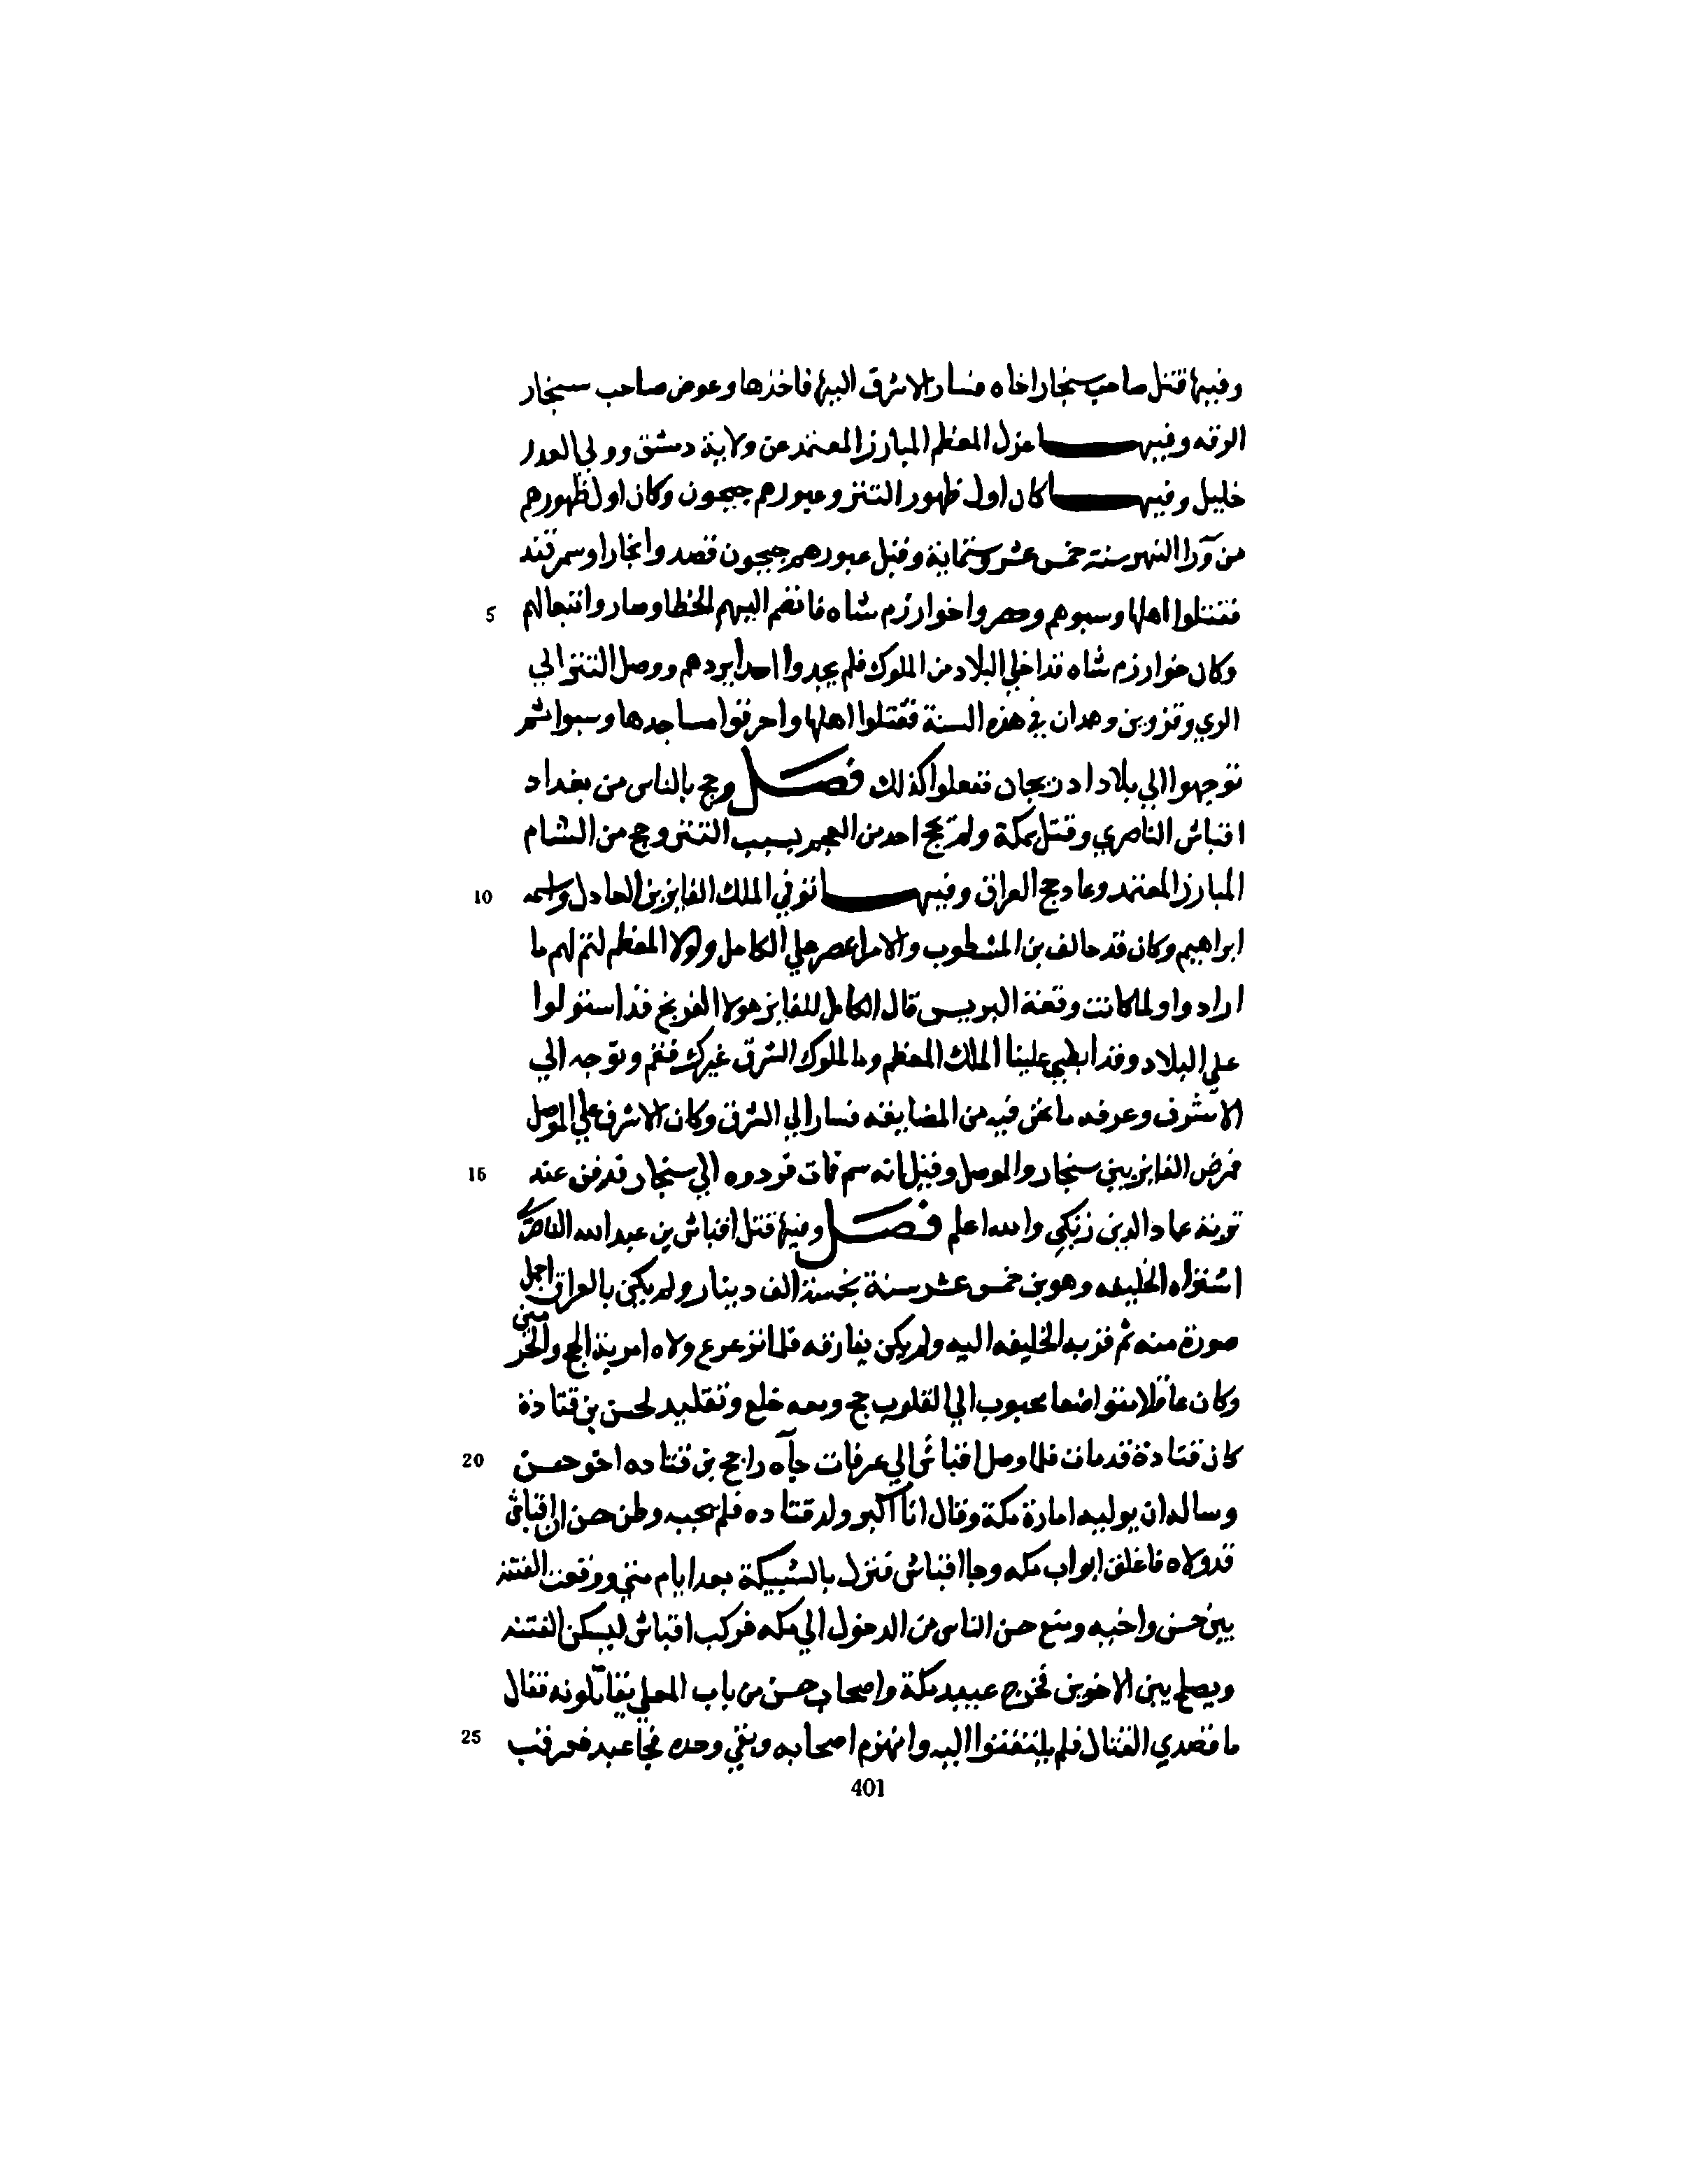 وفيها قتل صاحب سنجار اخاه فسار الاشرف اليها فاخذها وعوض صاحب سنجار
الرقه وفيها عزل المعظم المبارز المعتمد عن ولاية دمشق وولي العدل
خليل وفيها كان اول ظهور التتر وعبورهم جيحون وكان اول ظهورهم
من ورآ النهر سنة خمس عشر وستماية وقبل عبورهم جيحون قصدوا بخارا وسمرقند
فقتلوا اهلها وسبوهم وحصروا خوارزم شاه فانضم اليهم الخطا وصاروا تبعا لهم 5
وكان خوارزم شاه قد اخلي البلاد من الملوك فلم يجدوا احدا يردهم ووصل التتر الي
الري وقزوين وهمدان في هذه السنة فقتلوا اهلها واحرقوا مساجدها وسبوا ثم
توجهوا الي بلاد ادربيجان ففعلوا كذلك فصل وحج بالناس من بغداد
اقباش الناصري وقتل بمكة ولم يحج احد من العجم بسبب التتر وحج من الشام
المبارز المعتمد وعاد حج العراق وفيها توفي الملك الفايز بن العادل واسمه 10
ابراهيم وكان قد حالف بن المشطوب والامرا بمصر علي الكامل ولولا المعظم لتم لهم ما
ارادوا ولما كانت وقعة البرلس قال الكامل للفايز هولا الفرنج قد استولوا
علي البلاد وقد ابطي علينا الملك المعظم وما لملوك الشرق غيرك فقم وتوجه الي
الاشرف وعرفه ما نحن فيه من المضايقه فسار الي الشرق وكان الاشرف علي الموصل
فمرض الفايز بين سنجار والموصل وقيل انه سم فمات فردوه الي سنجار فدفن عند 15
تربة عماد الدين زنكي والله اعلم فصل وفيها قتل اقباش بن عبد الله الناصري
اشتراه الخليفه وهو بن خمس عشر سنة بخمسة الف دينار ولم يكن بالعراق اجمل
صورة منه ثم قربه الخليفه اليه ولم يكن يفارقه فلما ترعرع ولاه امرية الحج والحرمين
وكان عاقلا متواضعا محبوب الي القلوب حج ومعه خلع وتقليد لحسن بن قتادة
كان قتادة قد مات فلما وصل اقباش الي عرفات جآه راجح بن قتاده اخو حسن 20
وساله ان يوليه امارة مكة وقال انا اكبر ولد قتاده فلم يجبه وظن حسن ان اقباش
قد ولاه فاغلق ابواب مكه وجا اقباش فنزل بالشبيكة بعد ايام مني ووقعت الفتنه
بين حسن واخيه ومنع حسن الناس من الدخول الي مكه فركب اقباش ليسكن الفتنه
ويصلح بين الاخوين فخرج عبيد مكة واصحاب حسن من باب المعلي يقاتلونه فقال
ما قصدي القتال فلم يلتفتوا اليه وانهزم اصحابه وبقي وحده فجا عبد فعرقب 25
401